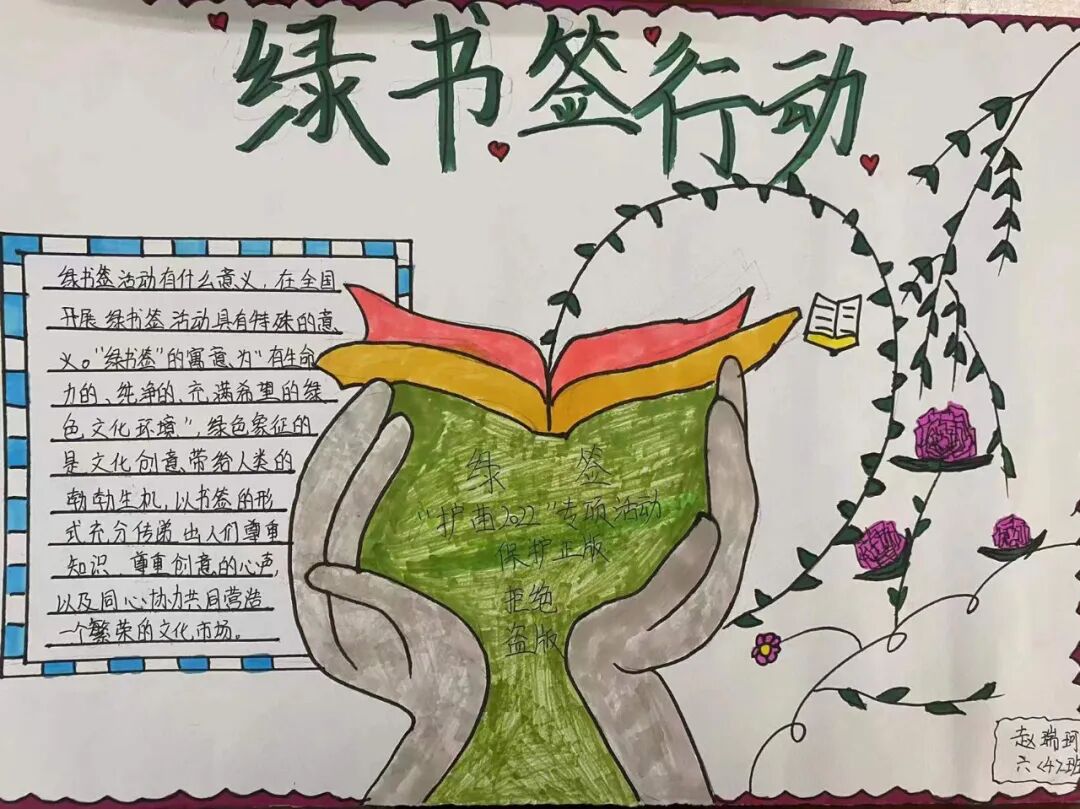 绿书签行动
绿书签活动有什么意义，在全国
开展绿书签活动具有特殊的意
义。“绿书签”的寓意为“有生命
力的、纯净的、充满希望的绿
色文化环境”，绿色象征的
是文化创意带给人类的
勃勃生机，以书签的形
式充分传递出人们尊重
知识 尊重创意的心声，
以及同心协力共同营造
一个繁荣的文化市场。
绿 签
“护苗2022”专项活动
保护正版
拒绝
盗版
赵瑞珂
六〈4〉班